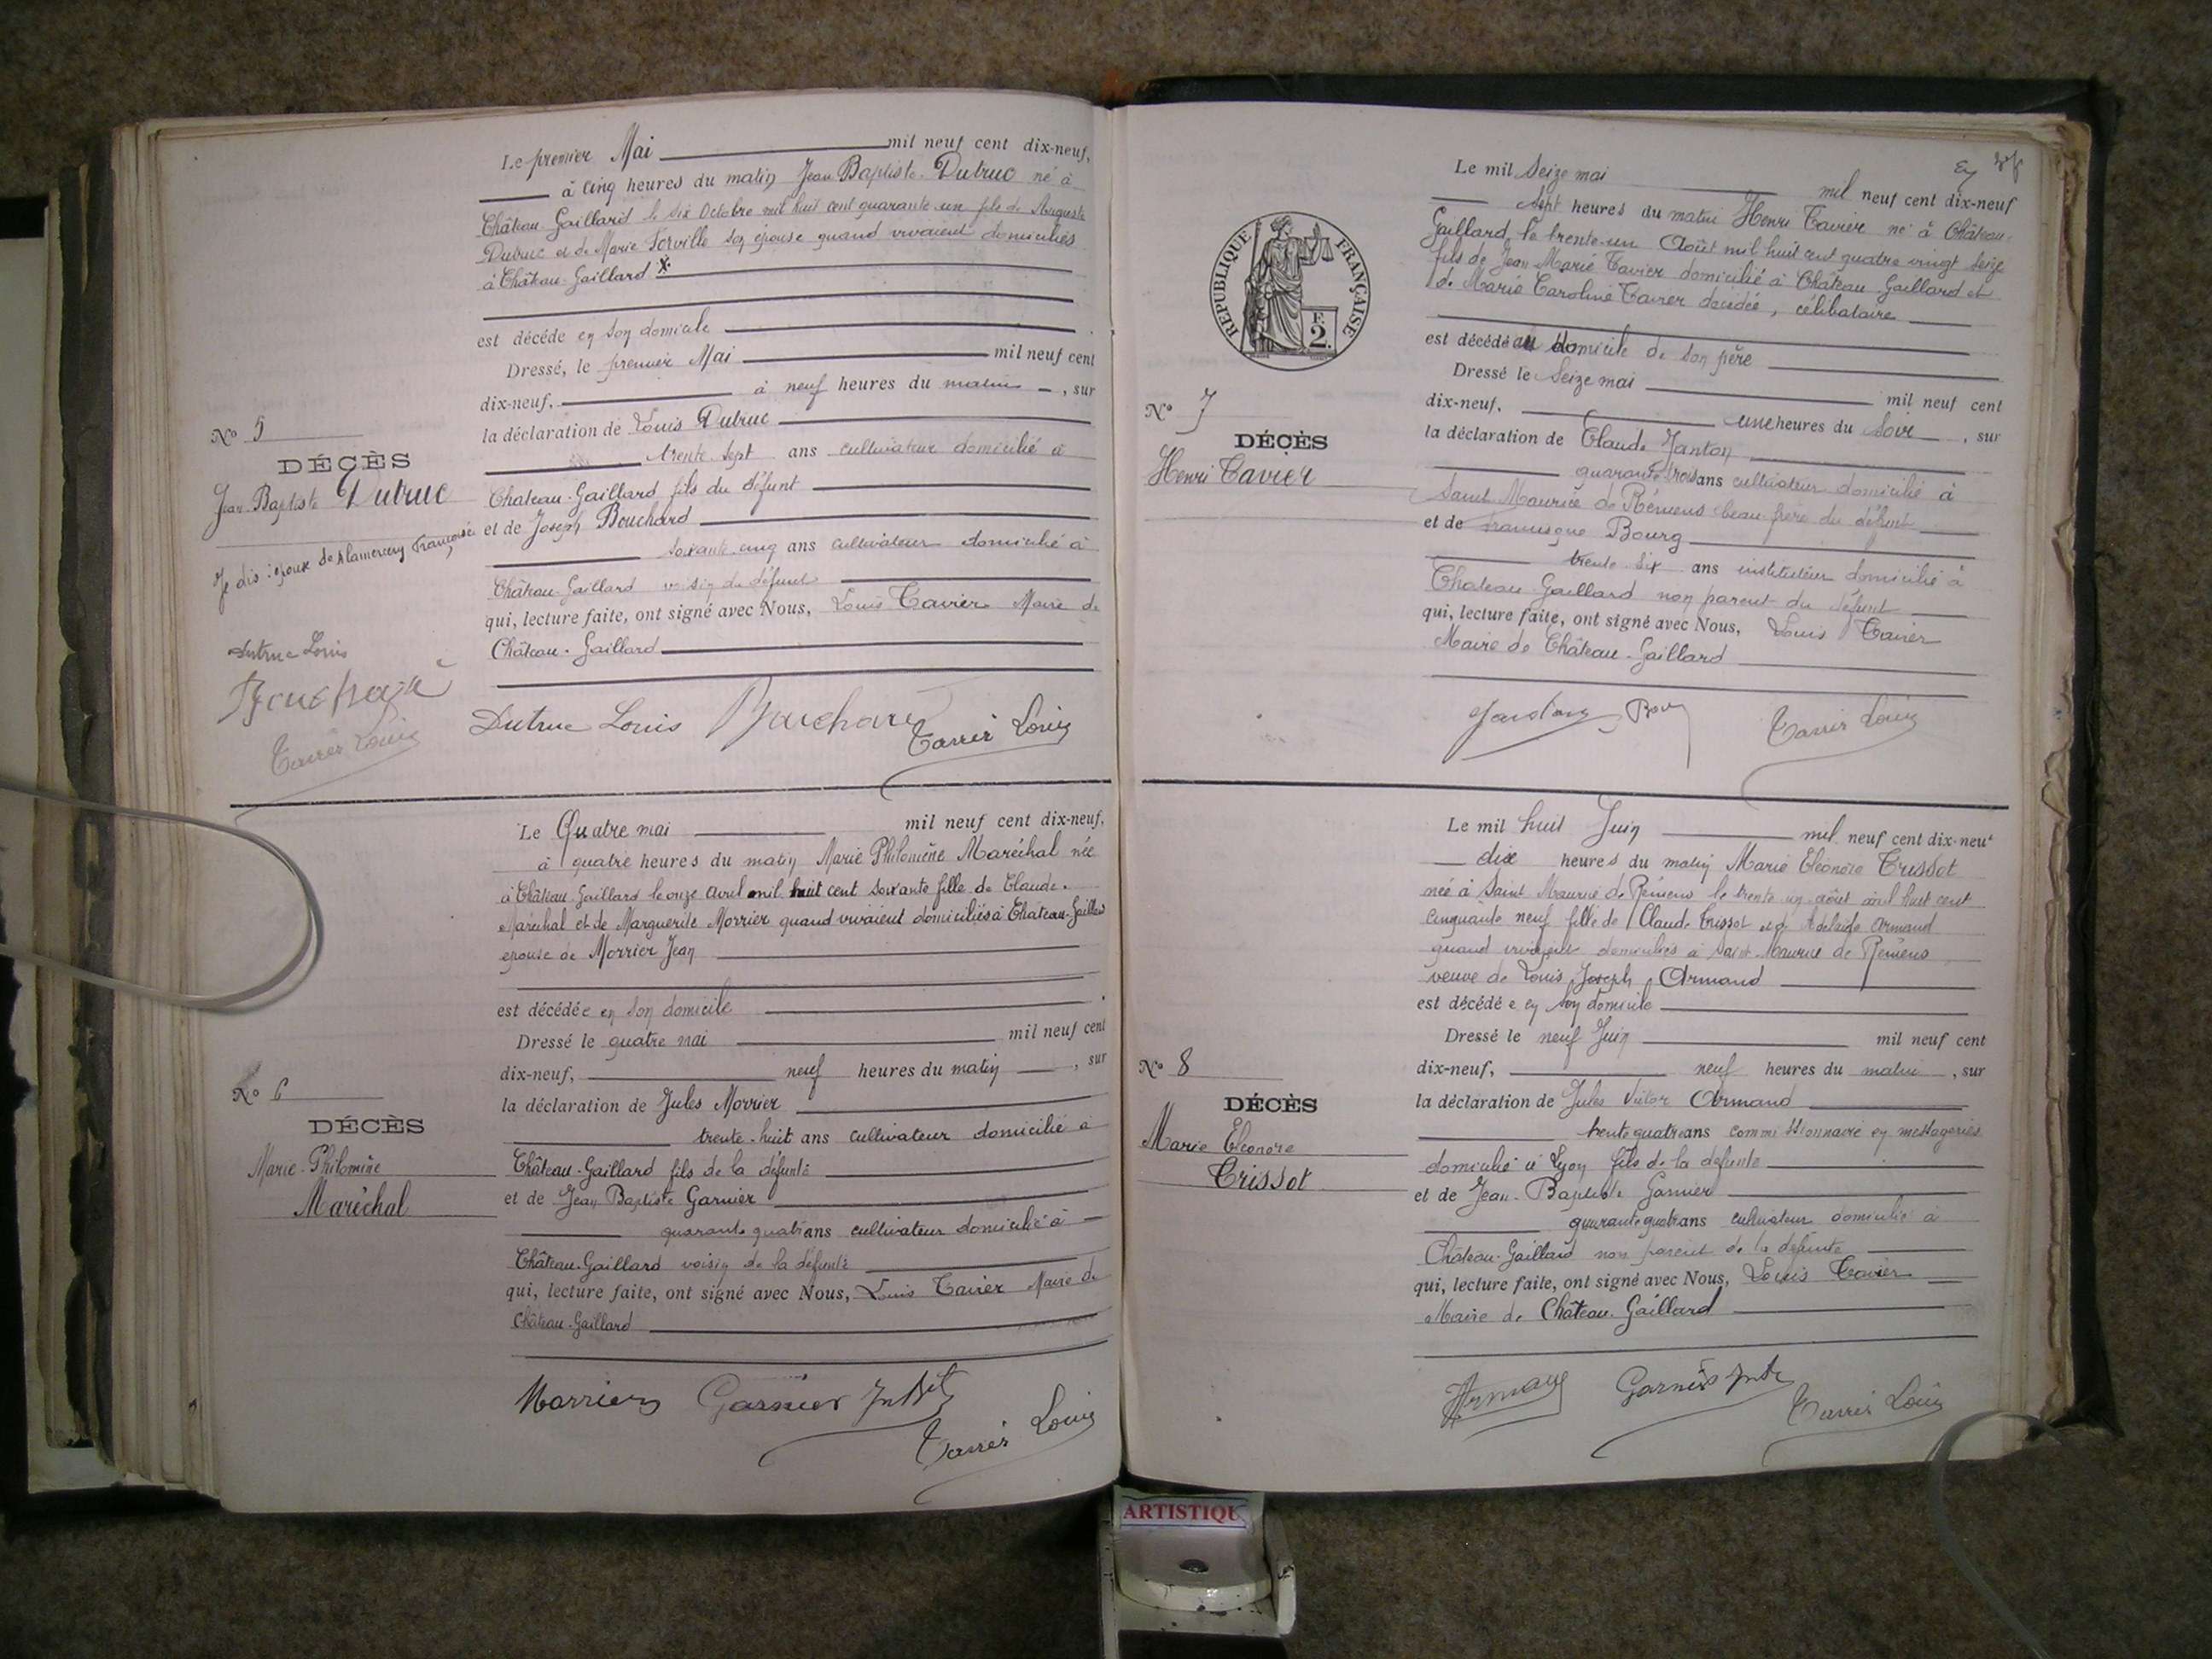 Le premier Mai mil neuf cent dix-neuf,
à cinq heures du matin Jean Baptiste Dutruc né à
Château-Gaillard le six Octobre mil huit cent quarante un fils de Auguste
Dutruc et de Marie son épouse quand vivaient domiciliés
à Château-Gaillard X.
est décédé en son domicile
Dressé, le premier Mai mil neuf cent
dix-neuf, à neuf heures du matin, sur
la déclaration de Louis Dutruc
trente-sept ans cultivateur domicilié à
Chateau-Gaillard fils du défunt
et de Joseph Bouchard
soixante cinq ans cultivateur domicilié à
Château-Gaillard voisin du défunt
qui, lecture faite, ont signé avec Nous, Louis Tavier Maire de
Château-Gaillard
Nº 5
DÉCÈS
Jean-Baptiste Dutruc
Je dis : époux de Françoise
Dutruc Louis
Bouchard
Tavier Louis
Dutruc Louis Bouchard Tavier Louis
Le Quatre mai mil neuf cent dix-neuf,
à quatre heures du matin Marie Philomène Maréchal née
à Château Gaillard le onze Avril mil huit cent soixante fille de Claude
Maréchal et de Marguerite Morrier quand vivaient domiciliés à Château-Gaillard
épouse de Morrier Jean
est décédée en son domicile
Dressé le quatre mai mil neuf cent
dix-neuf, neuf heures du matin, sur
la déclaration de Jules Morrier
trente-huit ans cultivateur domicilié à
Château-Gaillard fils de la défunte
et de Jean Baptiste Garnier
quarante quatre ans cultivateur domicilié à
Château-Gaillard voisin de la défunte
qui, lecture faite, ont signé avec Nous, Louis Tavier Maire de
Château-Gaillard
Nº 6
DÉCÈS
Marie-Philomène
Maréchal
Morrier Garnier Tavier Louis
Le mil Seize mai mil neuf cent dix-neuf
sept heures du matin Henri Tavier né à Château-
Gaillard, le trente-un Août mil huit cent quatre vingt seize
fils de Jean Marie Tavier domicilié à Château-Gaillard et
de Marie Caroline Tavier décédée, célibataire
est décédé au domicile de son père
Dressé le Seize mai mil neuf cent
dix-neuf, une heures du soir, sur
la déclaration de Claude Janton
quarante trois ans cultivateur domicilié à
Saint Maurice de Rémens beau frère du défunt
et de Bourg
trente-six ans instituteur domicilié à
Chateau-Gaillard non parent du défunt
qui, lecture faite, ont signé avec Nous, Louis Tavier
Maire de Château-Gaillard
RÉPUBLIQUE FRANÇAISE
F.
2.
Nº 7
DÉCÈS
Henri Tavier
Tavier Louis
Le mil huit Juin mil neuf cent dix-neuf
dix heures du matin Marie Eléonore Crissot
née à Saint Maurice de Rémens le trente un août mil huit cent
cinquante neuf fille de Claude Crissot et de Adelaïde Armand
quand vivaient domiciliés à Saint-Maurice de Rémens
veuve de Louis Joseph Armand
est décédée en son domicile
Dressé le neuf Juin mil neuf cent
dix-neuf, neuf heures du matin, sur
la déclaration de Jules Victor Armand
trente quatre ans commissionnaire en messageries
domicilié à Lyon fils de la défunte
et de Jean-Baptiste Garnier
quarante quatre ans cultivateur domicilié à
Château-Gaillard non parent de la défunte
qui, lecture faite, ont signé avec Nous, Louis Tavier
Maire de Château-Gaillard
Nº 8
DÉCÈS
Marie Eléonore
Crissot
Armand Garnier Tavier Louis
ARTISTIQU